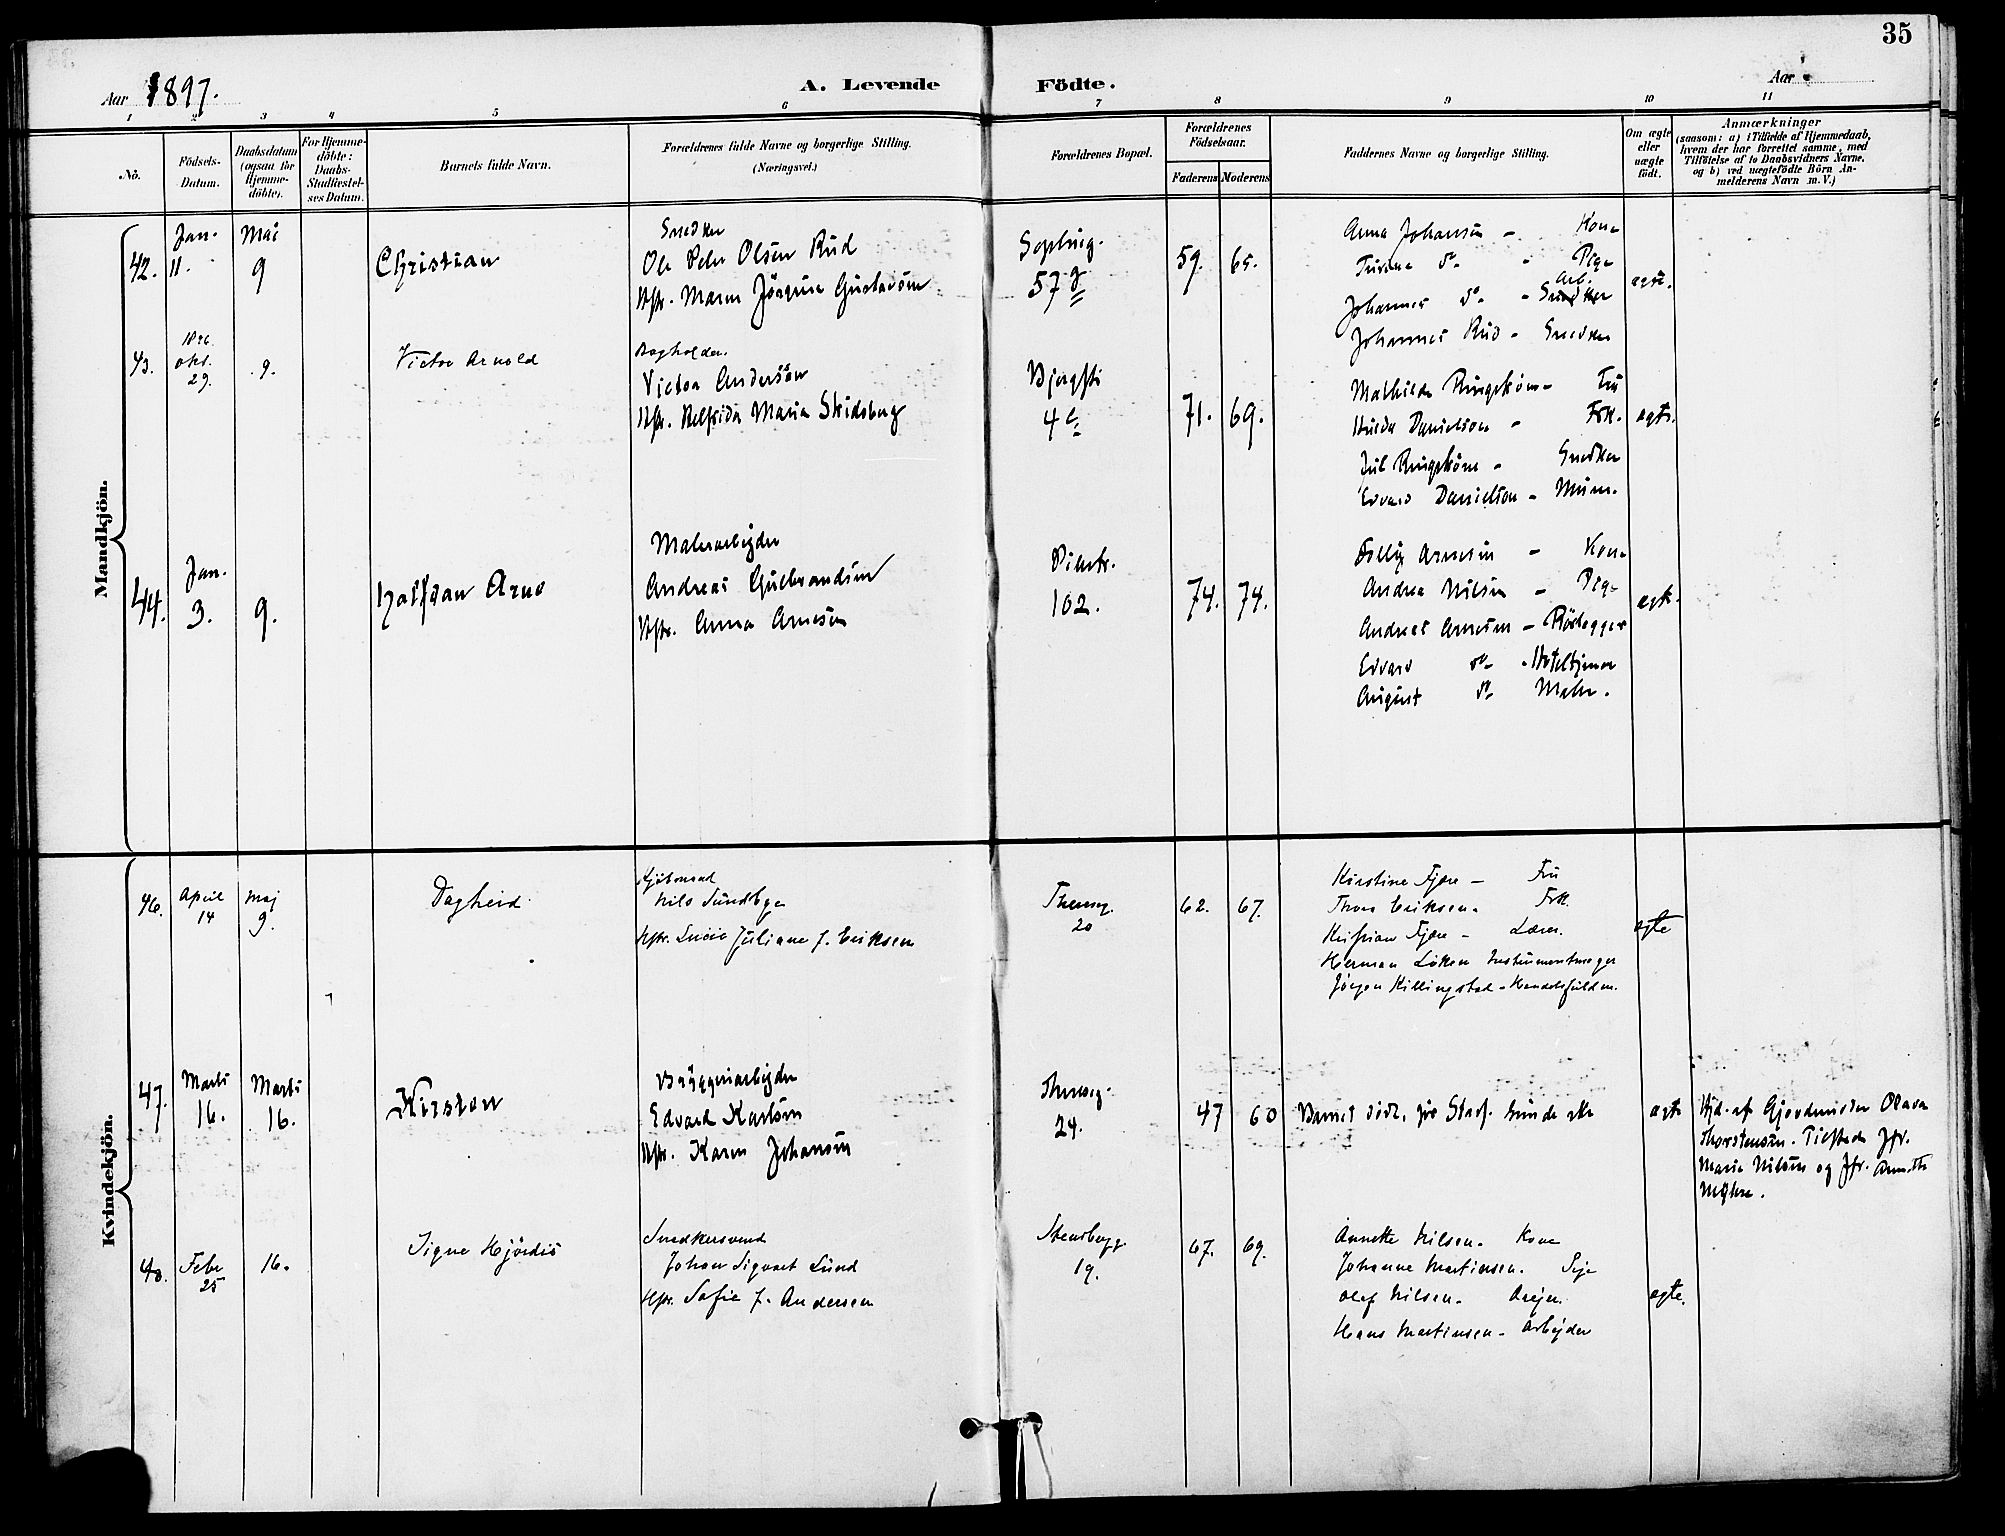 35
Aar 1897.
A. Levende Födte.
Aar
1 2 3 4 5 6 7 8 9 10 11
No.
Födsels-
Datum.
Daabsdatum
(ogsaa for
Hjemme-
döbte).
For Hjemme-
döbte:
Daabs-
Stadfæstel-
ses Datum.
Barnets fulde Navn.
Forældrenes fulde Navne og borgerlige Stilling.
(Næringsvei.)
Forældrenes Bopæl.
Forældrenes
Födselsaar.
Faderens Moderens
Faddernes Navne og borgerlige Stilling.
Om ægte
eller
uægte
födt.
Anmærkninger
(saasom: a) i Tilfælde af Hjemmedaab,
hvem der har forrettet samme, med
Tilföielse af to Daabsvidners Navne,
og b) ved uægtefödte Börn An-
melderens Navn m. V.)
Mandkjön.
42.
Jan.
11.
Mai
9
Christian
Snedker
Ole Peder Olsen Rud
Hstr. Maren Jörgine Gustavsen
57
59. 65.
Anna Johansen - Kone
do - Pige
Arb.
Johannes do - Snedker
Johannes Rud - Snedker
egte.
43.
okt.
29.
9.
Victor Arnold
Bogholder.
Victor Anderson
Hstr. Maria Skidsberg
4
71. 69.
Mathilde Ringström - Fru
Hulda Danielson - Frk.
Jul Ringström - Snedker
Edvard Danielson - Murer.
egte.
44.
Jan.
3.
9.
Halfdan Arne
Malerarbejder
Andreas Gulbrandsen
Hstr. Anna Arnesen
102.
74. 74.
Arnesen - Kone
Andrea Nilsen - Pige
Andreas Arnesen - Rörlegger
Edvard do - Hoteltjener
August do Maler.
egte.
Kvindekjön.
46.
April
14
Maj
9.
Dagheid
Kjöbmand
Nils Sundbye
Hstr. Juliane f. Eriksen
Theresg.
20
62. 67.
Kirstine Fjære - Fru
Thora Eriksen - Frk.
Kristian Fjære - Lærer.
Herman Löken Instrumentmager
Jörgen Killingstad - Handelsfuldm.
egte
47.
Marts
16.
Marts
16.
Kirsten
Bryggeriarbejder
Edvard Karlsen
Hstr. Karen Johansen
Theresg.
24.
47 60
Barnet död, för Stadf. kunde ske
egte
Hjd. af Gjordemoder Olava
Thorstensen. Tilstede Jfr.
Marie Nilsen og Jfr. Annette
Myhre.
48.
Febr
25
16.
Signe Hjördis
Snedkersvend
Johan Sigvart Lund
Hstr. Sofie f. Andersen
Stensbgg.
19.
67. 69.
Annette Nilsen. Kone
Johanne Martinsen. Pige
Olaf Nilsen. Drejer.
Hans Martinsen - Arbejder
egte.